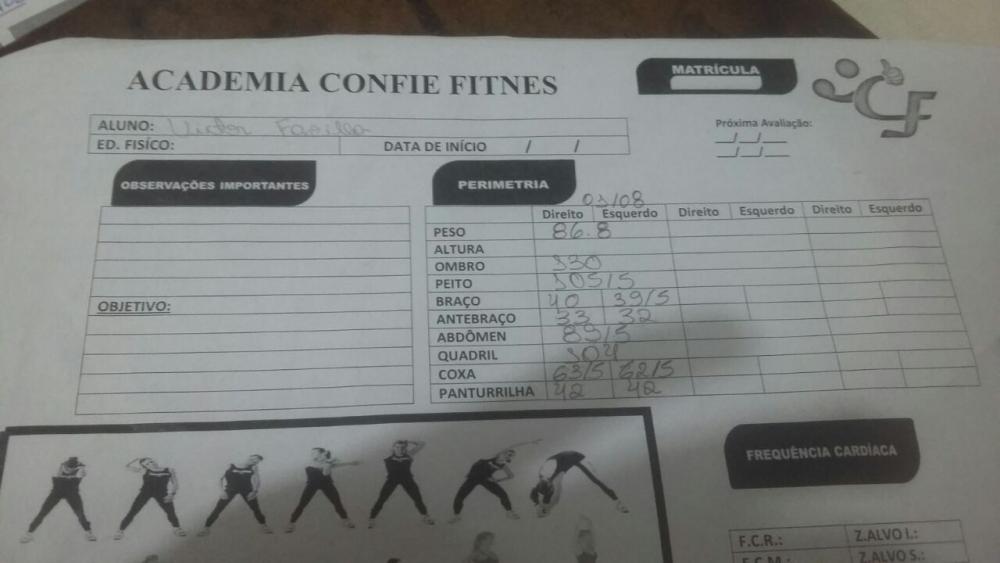 ACADEMIA CONFIE FITNES
MATRÍCULA
CF
ALUNO: Victor
Próxima Avaliação:
ED. FISÍCO: DATA DE INÍCIO / /
__/__/__
__/__/__
OBSERVAÇÕES IMPORTANTES
PERIMETRIA
03/08
Direito Esquerdo Direito Esquerdo Direito Esquerdo
PESO 86.8
ALTURA
OMBRO 130
PEITO 105/5
BRAÇO 40 39/5
OBJETIVO:
ANTEBRAÇO 33 32
ABDÔMEN 89/5
QUADRIL 104
COXA 63/5 62/5
PANTURRILHA 42 42
FREQUÊNCIA CARDÍACA
F.C.R.: Z.ALVO I.:
F.C.M.: Z.ALVO S.: